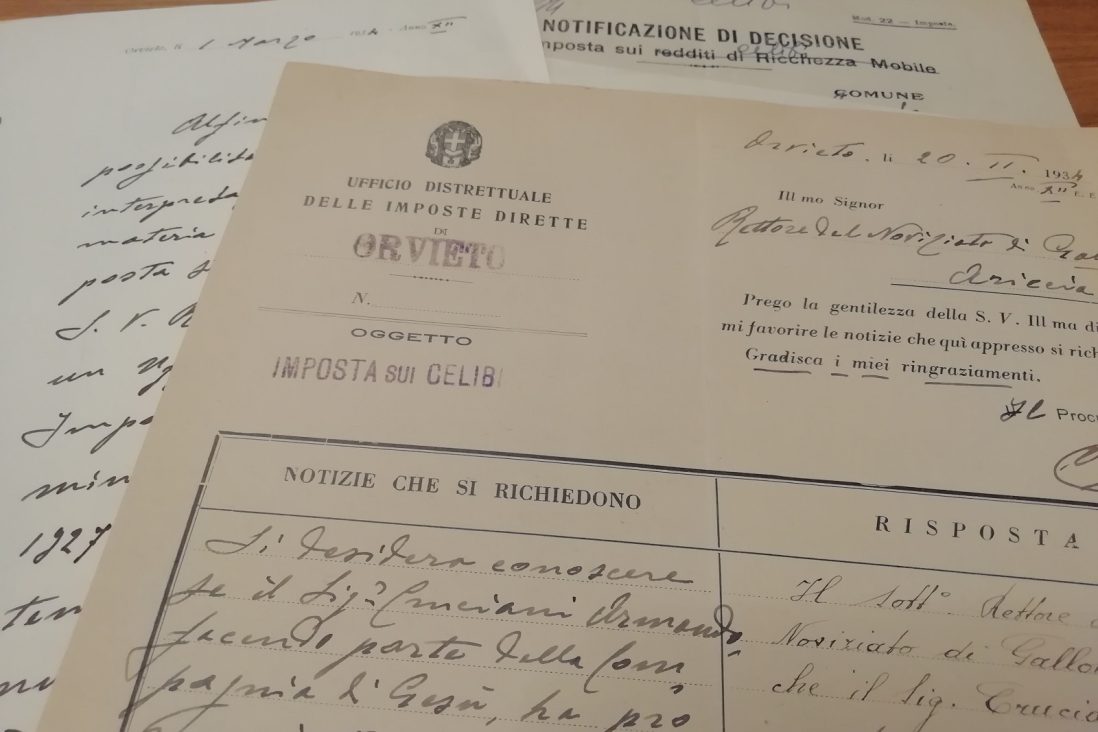 Orvieto, li 1 Marzo 1934 Anno XII
possibilità
materia
posta
S. V.
un
1927
celibi
Mod. 22 — Imposte
NOTIFICAZIONE DI DECISIONE
imposta sui redditi di Ricchezza Mobile
celibi
COMUNE
UFFICIO DISTRETTUALE
DELLE IMPOSTE DIRETTE
DI
ORVIETO
N.
OGGETTO
IMPOSTA SUI CELIBI
Orvieto, li 20. II. 1934
Anno XII E.
Ill mo Signor
Rettore del Noviziato di
Ariccia
Prego la gentilezza della S. V. Ill ma di
mi favorire le notizie che quì appresso si rich
Gradisca i miei ringraziamenti.
Il Proc
NOTIZIE CHE SI RICHIEDONO
Si desidera conoscere
se il Sig.r Cruciani Armando,
facendo parte della Com
pagnia di Gesù, ha pro
RISPOSTA
Il sott° Rettore
Noviziato di Gallo
che il Sig. Crucia